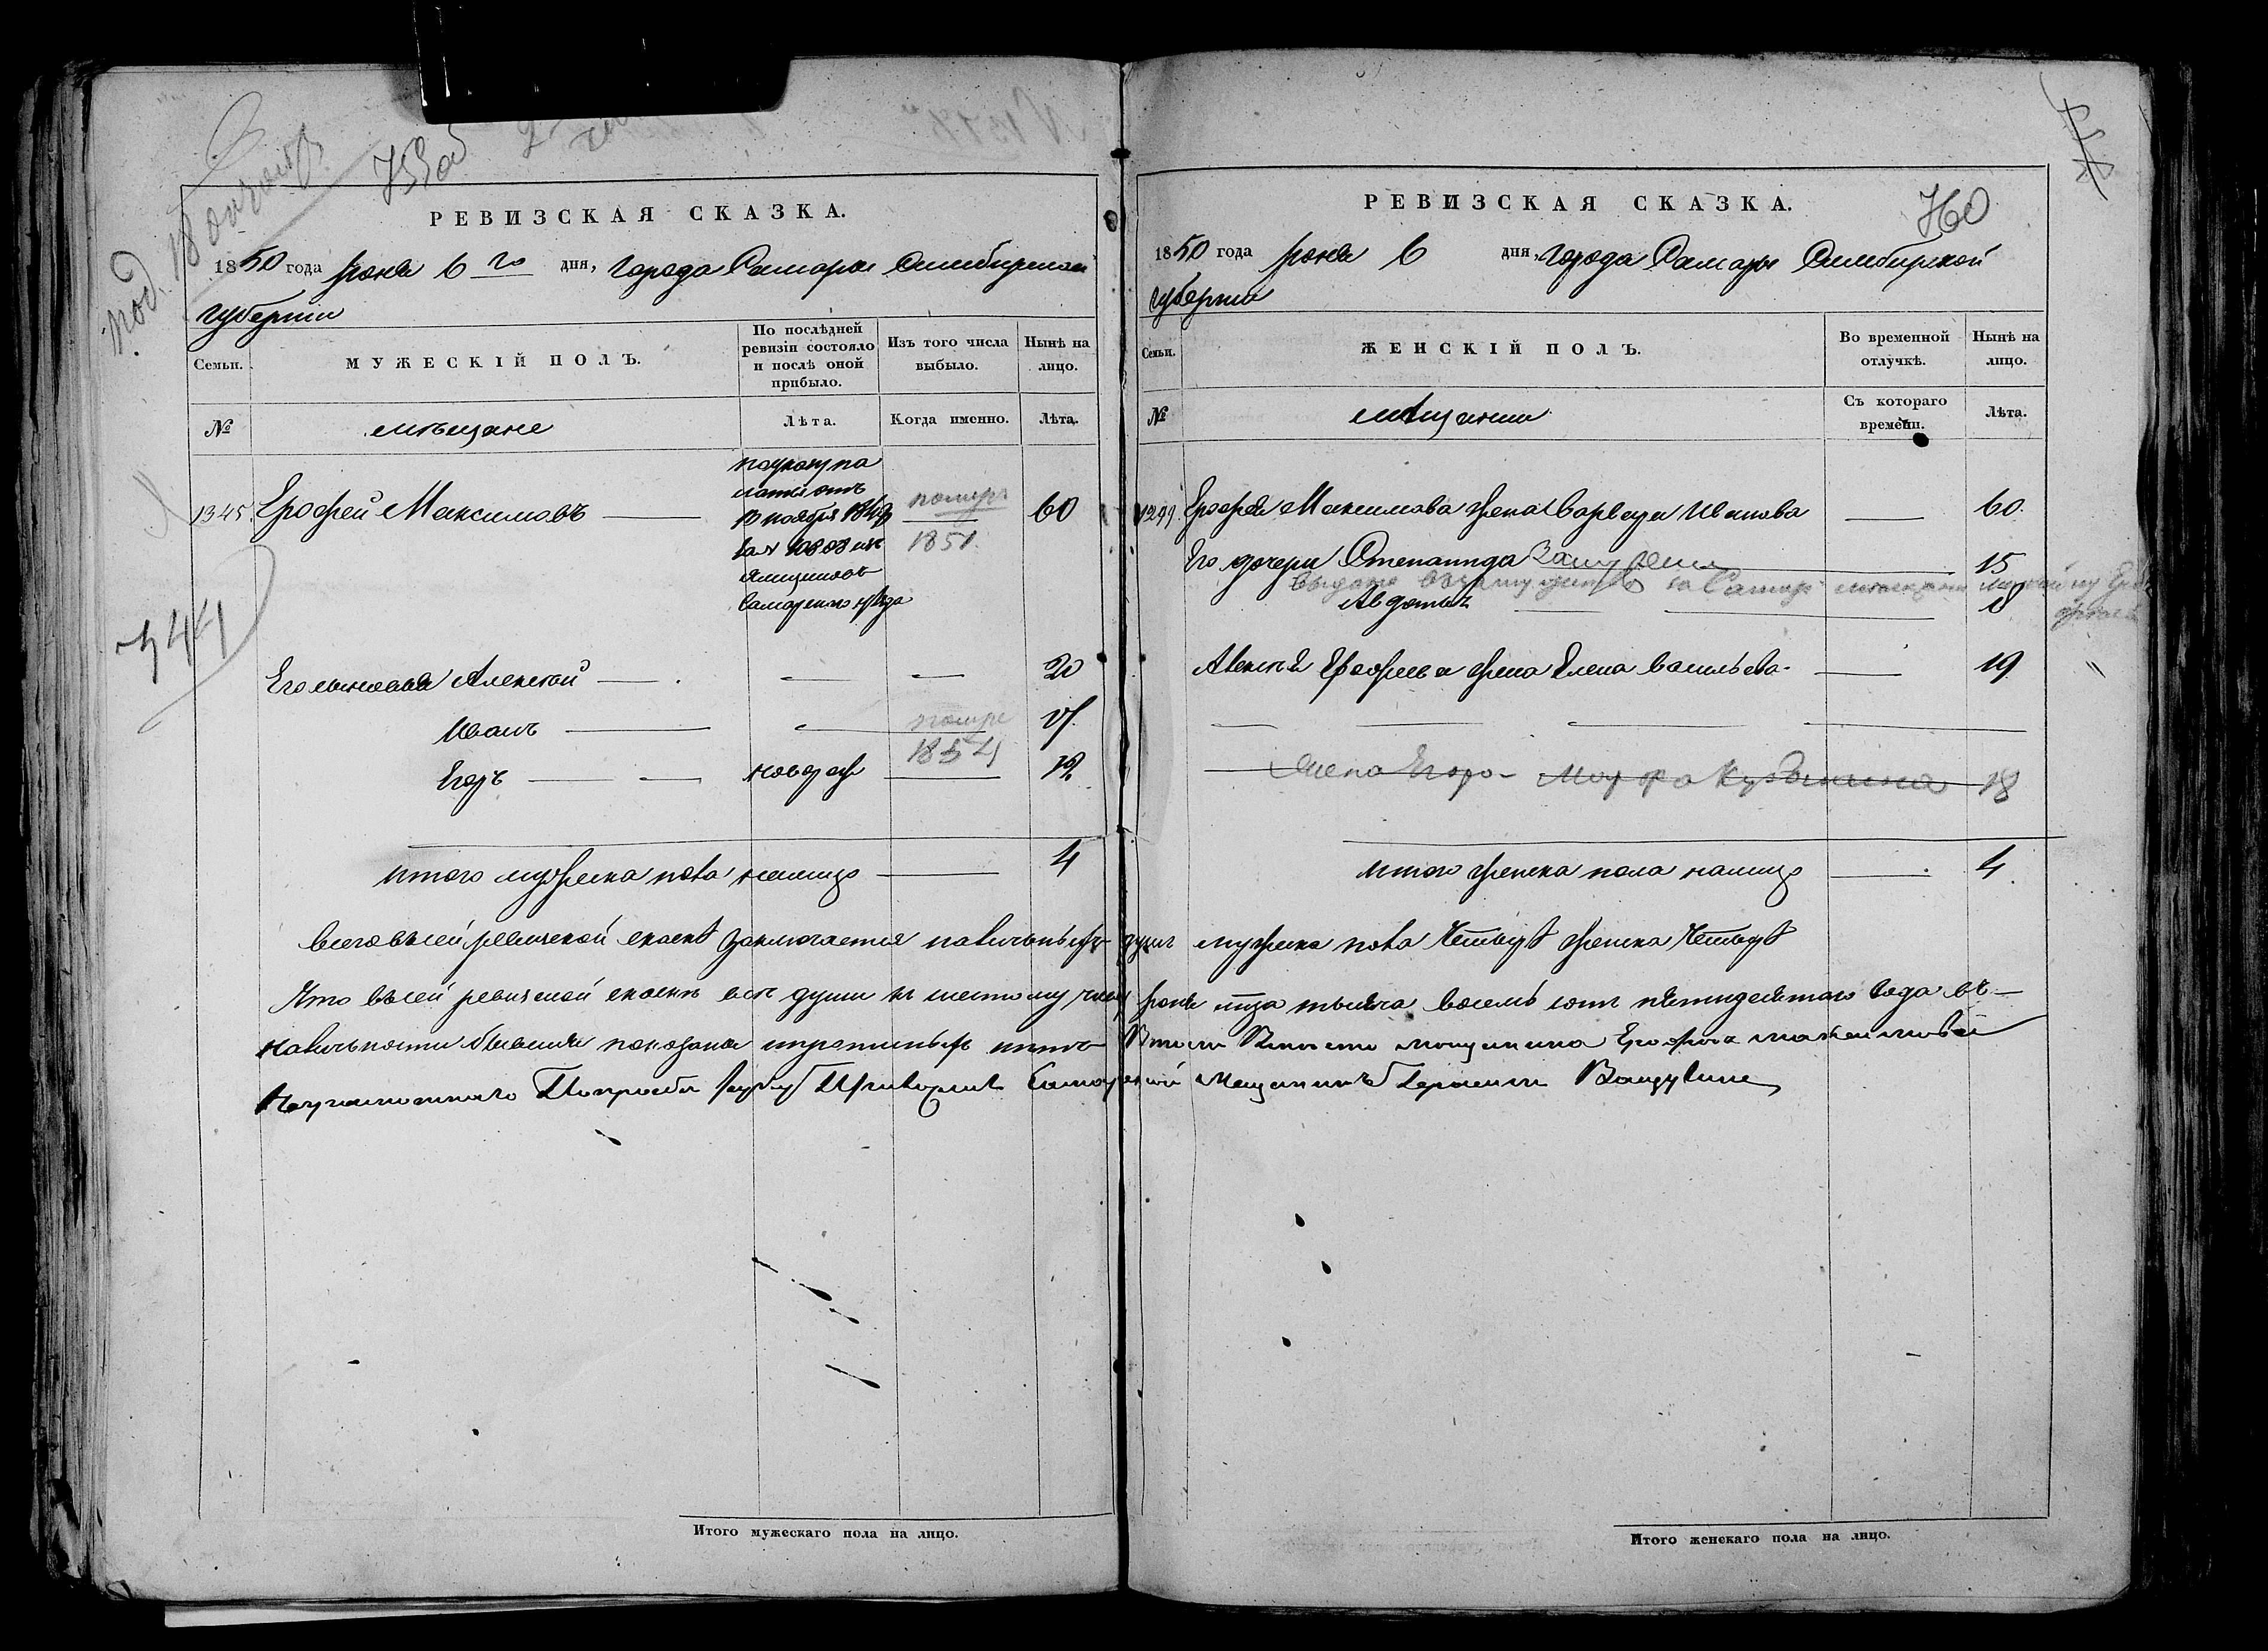 под. 18 октября
759 об
РЕВИЗСКАЯ СКАЗКА.
1850 года Июня 6го дня, города Самары Симбирской
губернии
Семьи. МУЖЕСКІЙ ПОЛЪ. По послѣдней ревизіи состояло и послѣ оной прибыло. Изъ того числа выбыло. Нынѣ на лицо.
№ мѣщане Лѣта. Когда именно. Лѣта.
по указу па
латы отъ
13 ноября
за № 10803 изъ
ямщиковъ
Самарскаго уѣзда
1345 Ерофей Максимовъ померъ 1851 60
344
Его сыновья Алексей 20
Иванъ помре 1854 17
Егоръ новорож
итого мужеска пола налицо 4
760
РЕВИЗСКАЯ СКАЗКА.
1850 года Июня 6 дня, города Самары Симбирской
губернии
Семьи. ЖЕНСКІЙ ПОЛЪ. Во временной отлучкѣ. Нынѣ на лицо.
№ мѣщанки Съ котораго времени. Лѣта.
1299 Ерофея Максимова жена Варвара Иванова 60.
Его дочери Степанида замужем 15
выдана в замужество за Самар
Авдотья
Алексея Ерофеева жена Елена Васильева 19
жена Егора Марфа Кузьмина 18
итого женска пола налицо 4
Всего в сей ревизской сказке заключается наличныхъ душъ мужеска пола четыре женска четыре
Что в сей ревизской сказке все души к шестому числу Июня тысяча восемь сотъ пятидесятого года въ
наличности бывшия показаны
неграмотнаго По прозбе руку приложил Самарской Мещанинъ
Итого мужескаго пола на лицо.
Итого женскаго пола на лицо.